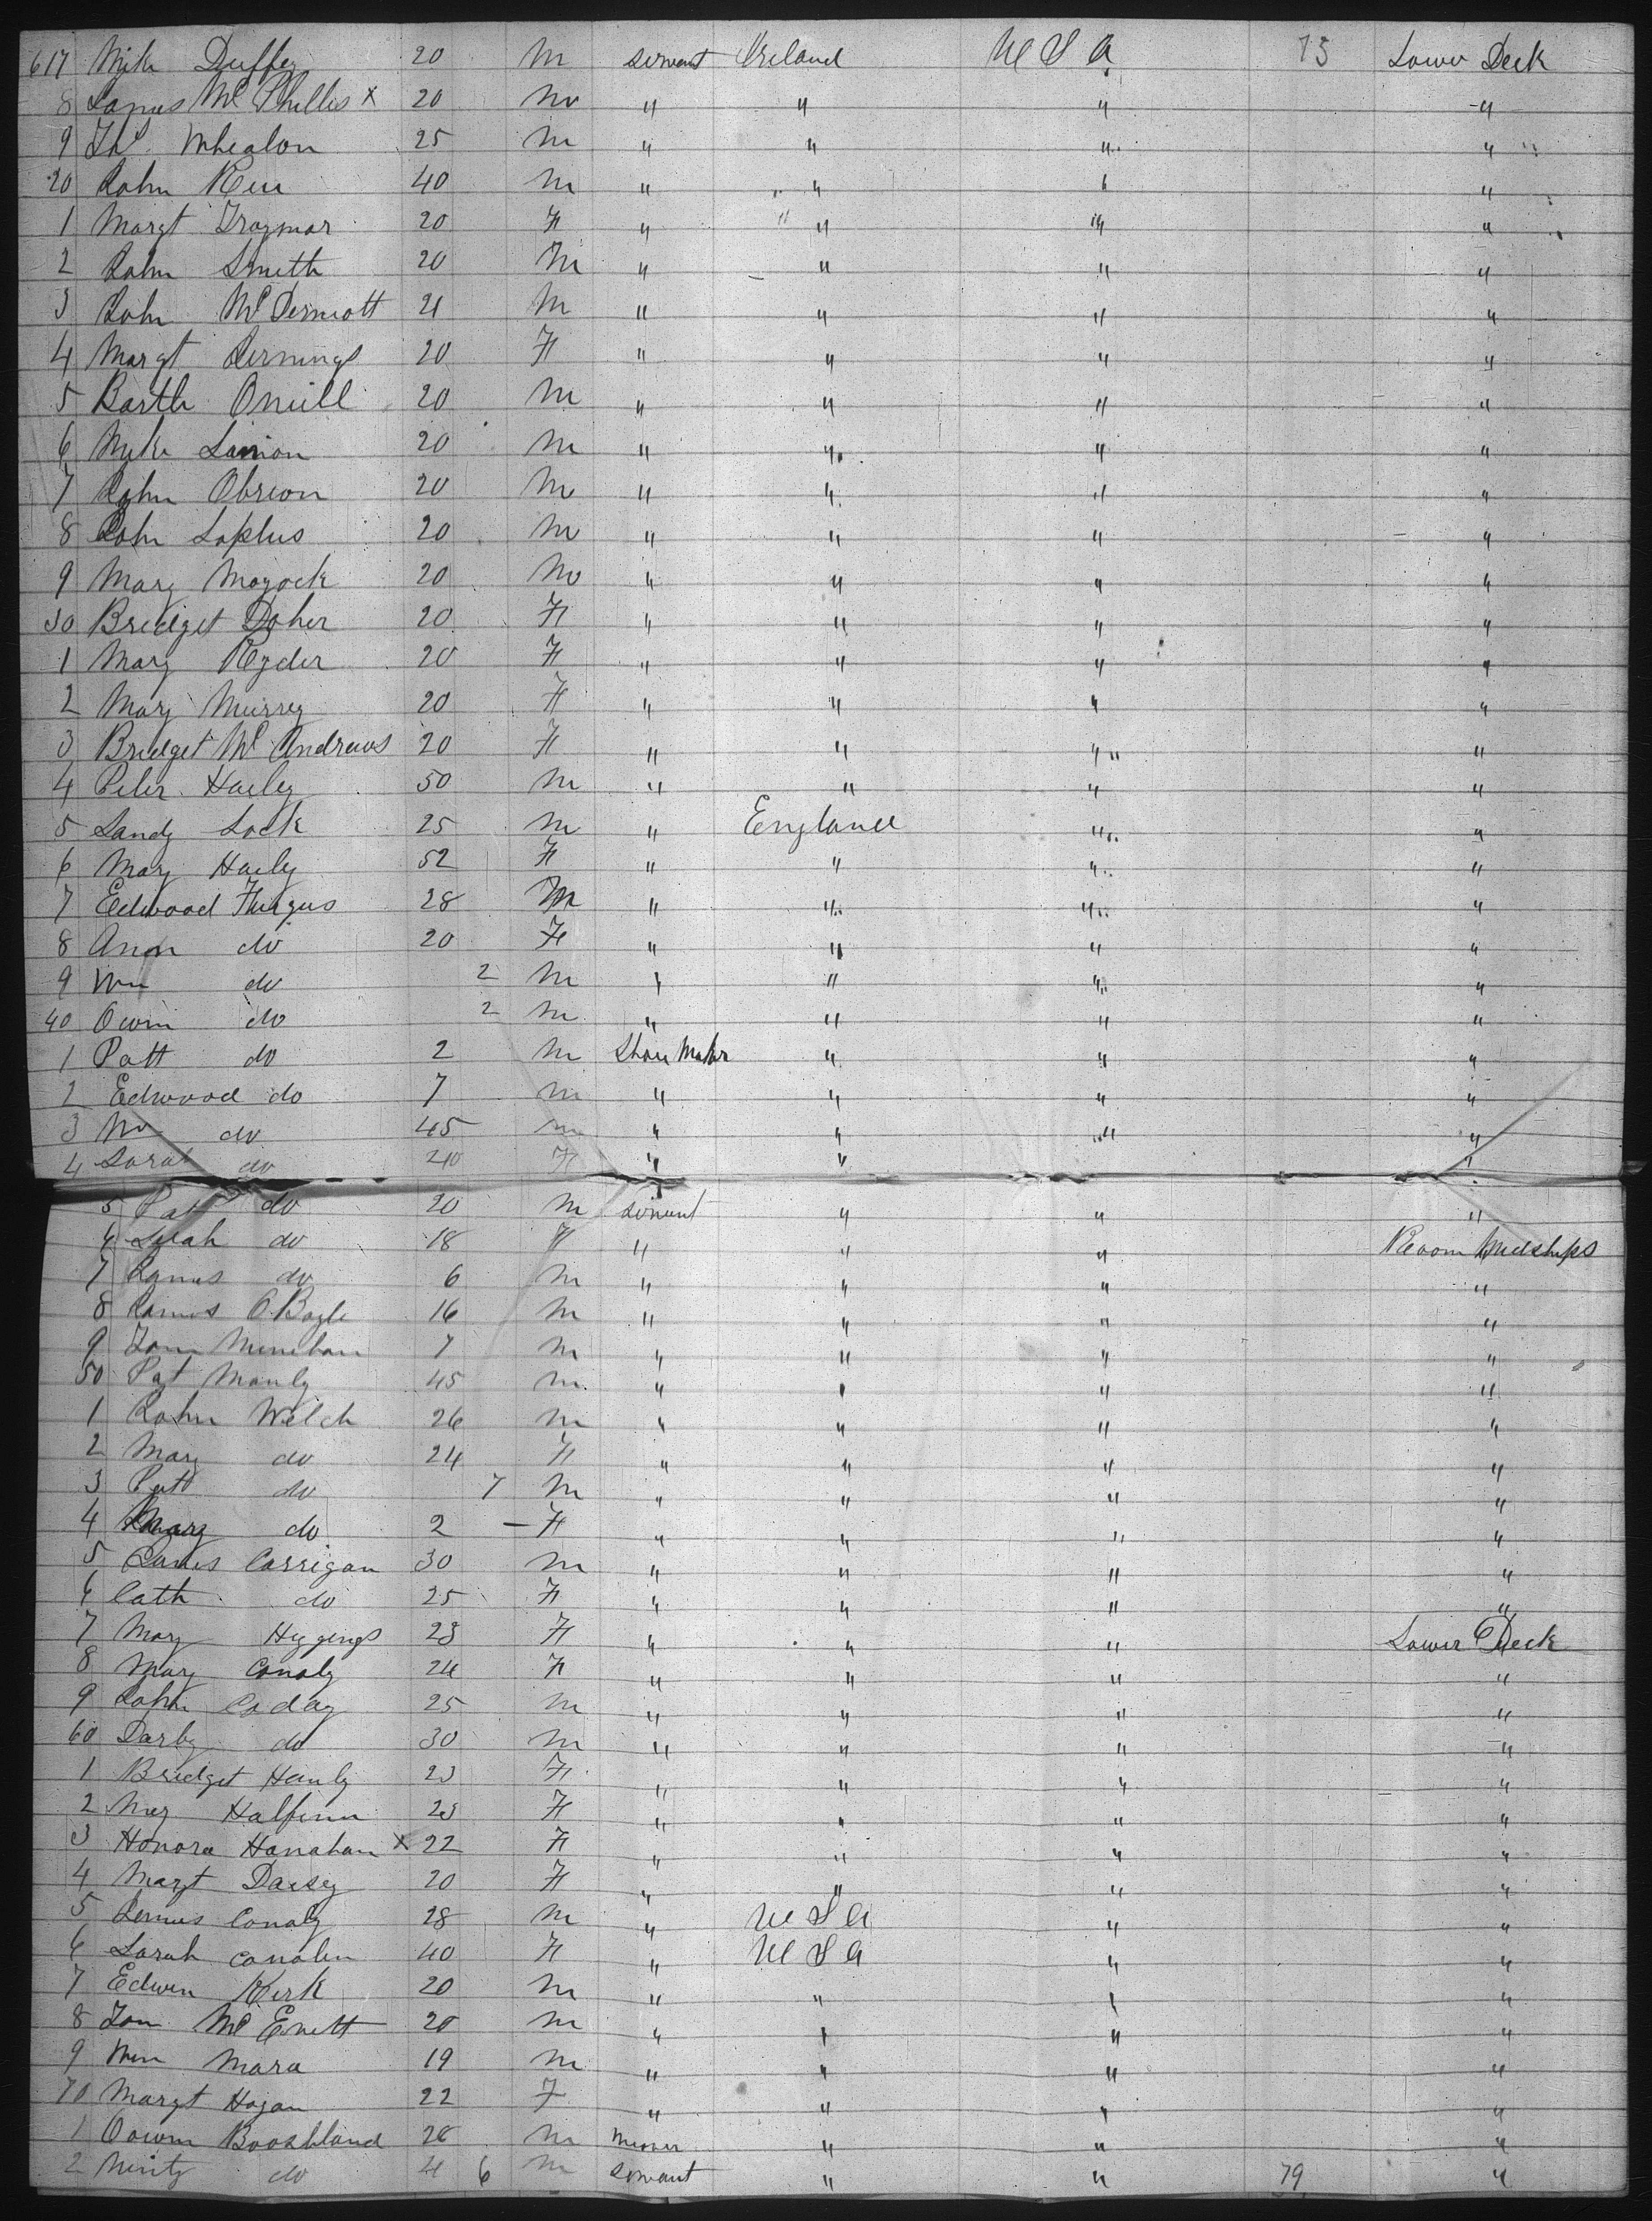 617 Mike Duffey 20 M servant Ireland U S A 73 Lower Deck
8 James Mc Phillis x 20 M " " " "
9 Thos. Whealon 25 M " " " "
20 John 40 M " " " "
1 Margt 20 F " " " "
2 John Smith 20 M " " " "
3 John McDermott 21 M " " " "
4 Margt Jennings 20 F " " " "
5 Barth Oneill 20 M " " " "
6 Mike 20 M " " " "
7 John Obreon 20 M " " " "
8 John Loftus 20 M " " " "
9 Mary 20 M " " " "
30 Bridget Doher 20 F " " " "
1 Mary Ryder 20 F " " " "
2 Mary Murrey 20 F " " " "
3 Bridget Mc Andrews 20 F " " " "
4 Peter Haely 50 M " " " "
5 Sandy Lock 25 M " England " "
6 Mary Haely 52 F " " " "
7 Edwood Furgus 28 M " " " "
8 Ann do 20 F " " " "
9 Wm do 2 M " " " "
40 Owin do 2 M " " " "
1 Patt do 2 M Shoe Maker " " "
2 Edwood do 7 M " " " "
3 Wm do 45 M " " " "
4 Sarah do 20 F " " "
5 Patt do 20 M servant " " "
6 do 18 F " " " Room Midships
7 James do 6 M " " " "
8 James O. Bogle 16 M " " " "
9 Tom Menehan 7 M " " " "
50 Pat Manly 45 M " " " "
1 John Welch 26 M " " " "
2 Mary do 24 F " " " "
3 Patt do 7 M " " " "
4 Mary do 2 – F " " " "
5 James Corrigan 30 M " " " "
6 Cath do 25 F " " " "
7 Mary Higgings 23 F " " " Lower Deck
8 Mary Conoly 24 F " " " "
9 John Coday 25 M " " " "
60 Darby do 30 M " " " "
1 Bridget Hanly 23 F " " " "
2 Mary Halfinn 23 F " " " "
3 Honora Hanahan x 22 F " " " "
4 Margt Daisey 20 F " " " "
5 James Conoly 28 M " U S A " "
6 Sarah Conolin 40 F " U S A " "
7 Edwin Kirk 20 M " " " "
8 Tom Mc Evett 20 M " " " "
9 Wm Mara 19 M " " " "
70 Margt Hogan 22 F " " " "
1 28 M " " "
2 do 4 6 M servant " " 79 "